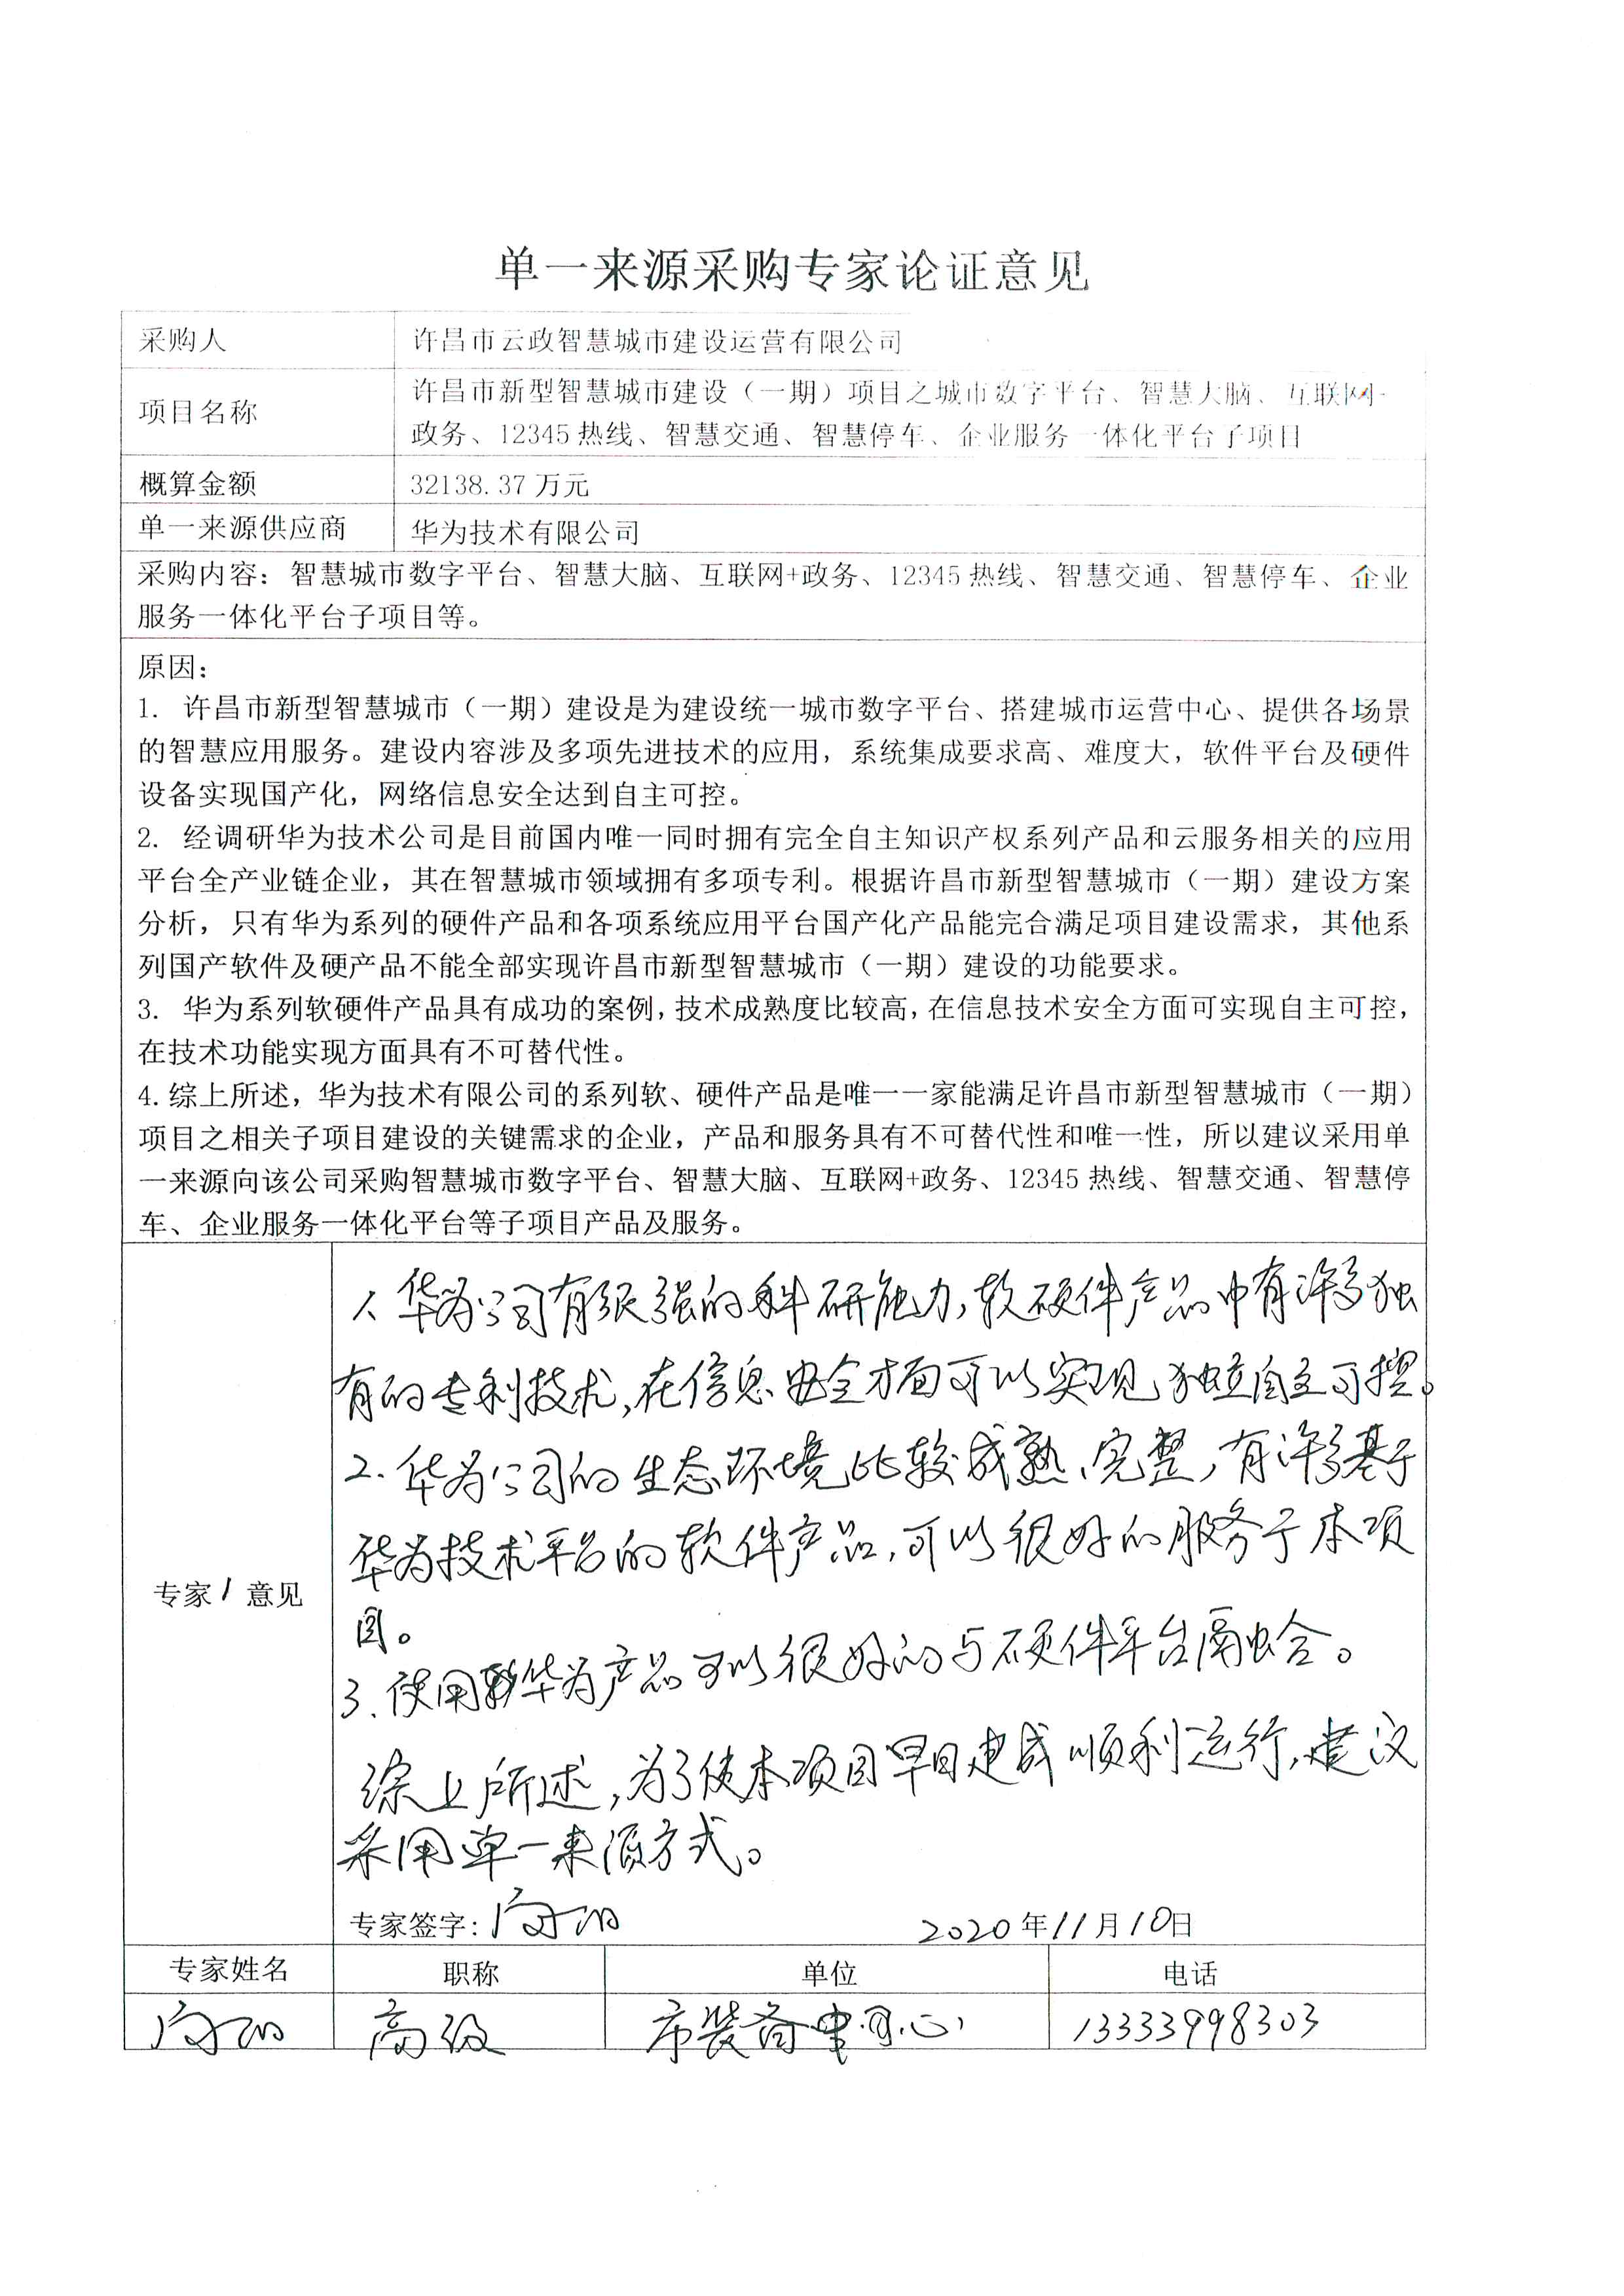 单一来源采购专家论证意见
采购人 许昌市云政智慧城市建设运营有限公司
项目名称 许昌市新型智慧城市建设（一期）项目之城市数字平台、智慧大脑、互联网+
政务、12345热线、智慧交通、智慧停车、企业服务一体化平台子项目
概算金额 32138.37万元
单一来源供应商 华为技术有限公司
采购内容：智慧城市数字平台、智慧大脑、互联网+政务、12345热线、智慧交通、智慧停车、企业
服务一体化平台子项目等。
原因：
1. 许昌市新型智慧城市（一期）建设是为建设统一城市数字平台、搭建城市运营中心、提供各场景
的智慧应用服务。建设内容涉及多项先进技术的应用，系统集成要求高、难度大，软件平台及硬件
设备实现国产化，网络信息安全达到自主可控。
2. 经调研华为技术公司是目前国内唯一同时拥有完全自主知识产权系列产品和云服务相关的应用
平台全产业链企业，其在智慧城市领域拥有多项专利。根据许昌市新型智慧城市（一期）建设方案
分析，只有华为系列的硬件产品和各项系统应用平台国产化产品能完合满足项目建设需求，其他系
列国产软件及硬产品不能全部实现许昌市新型智慧城市（一期）建设的功能要求。
3. 华为系列软硬件产品具有成功的案例，技术成熟度比较高，在信息技术安全方面可实现自主可控，
在技术功能实现方面具有不可替代性。
4.综上所述，华为技术有限公司的系列软、硬件产品是唯一一家能满足许昌市新型智慧城市（一期）
项目之相关子项目建设的关键需求的企业，产品和服务具有不可替代性和唯一性，所以建议采用单
一来源向该公司采购智慧城市数字平台、智慧大脑、互联网+政务、12345热线、智慧交通、智慧停
车、企业服务一体化平台等子项目产品及服务。
1、华为公司有很强的科研能力，软硬件产品中有许多独
有的专利技术，在信息安全方面可以实现独立自主可控。
2、华为公司的生态环境比较成熟、完整，有许多基于
华为技术平台的软件产品，可以很好的服务于本项
目。
专家1意见
3、使用华为产品可以很好的与硬件平台融合。
综上所述，为了使本项目早日建成顺利运行，建议
采用单一来源方式。
专家签字： 2020年11月10日
专家姓名 职称 单位 电话
高级 市装备中心 13333998303